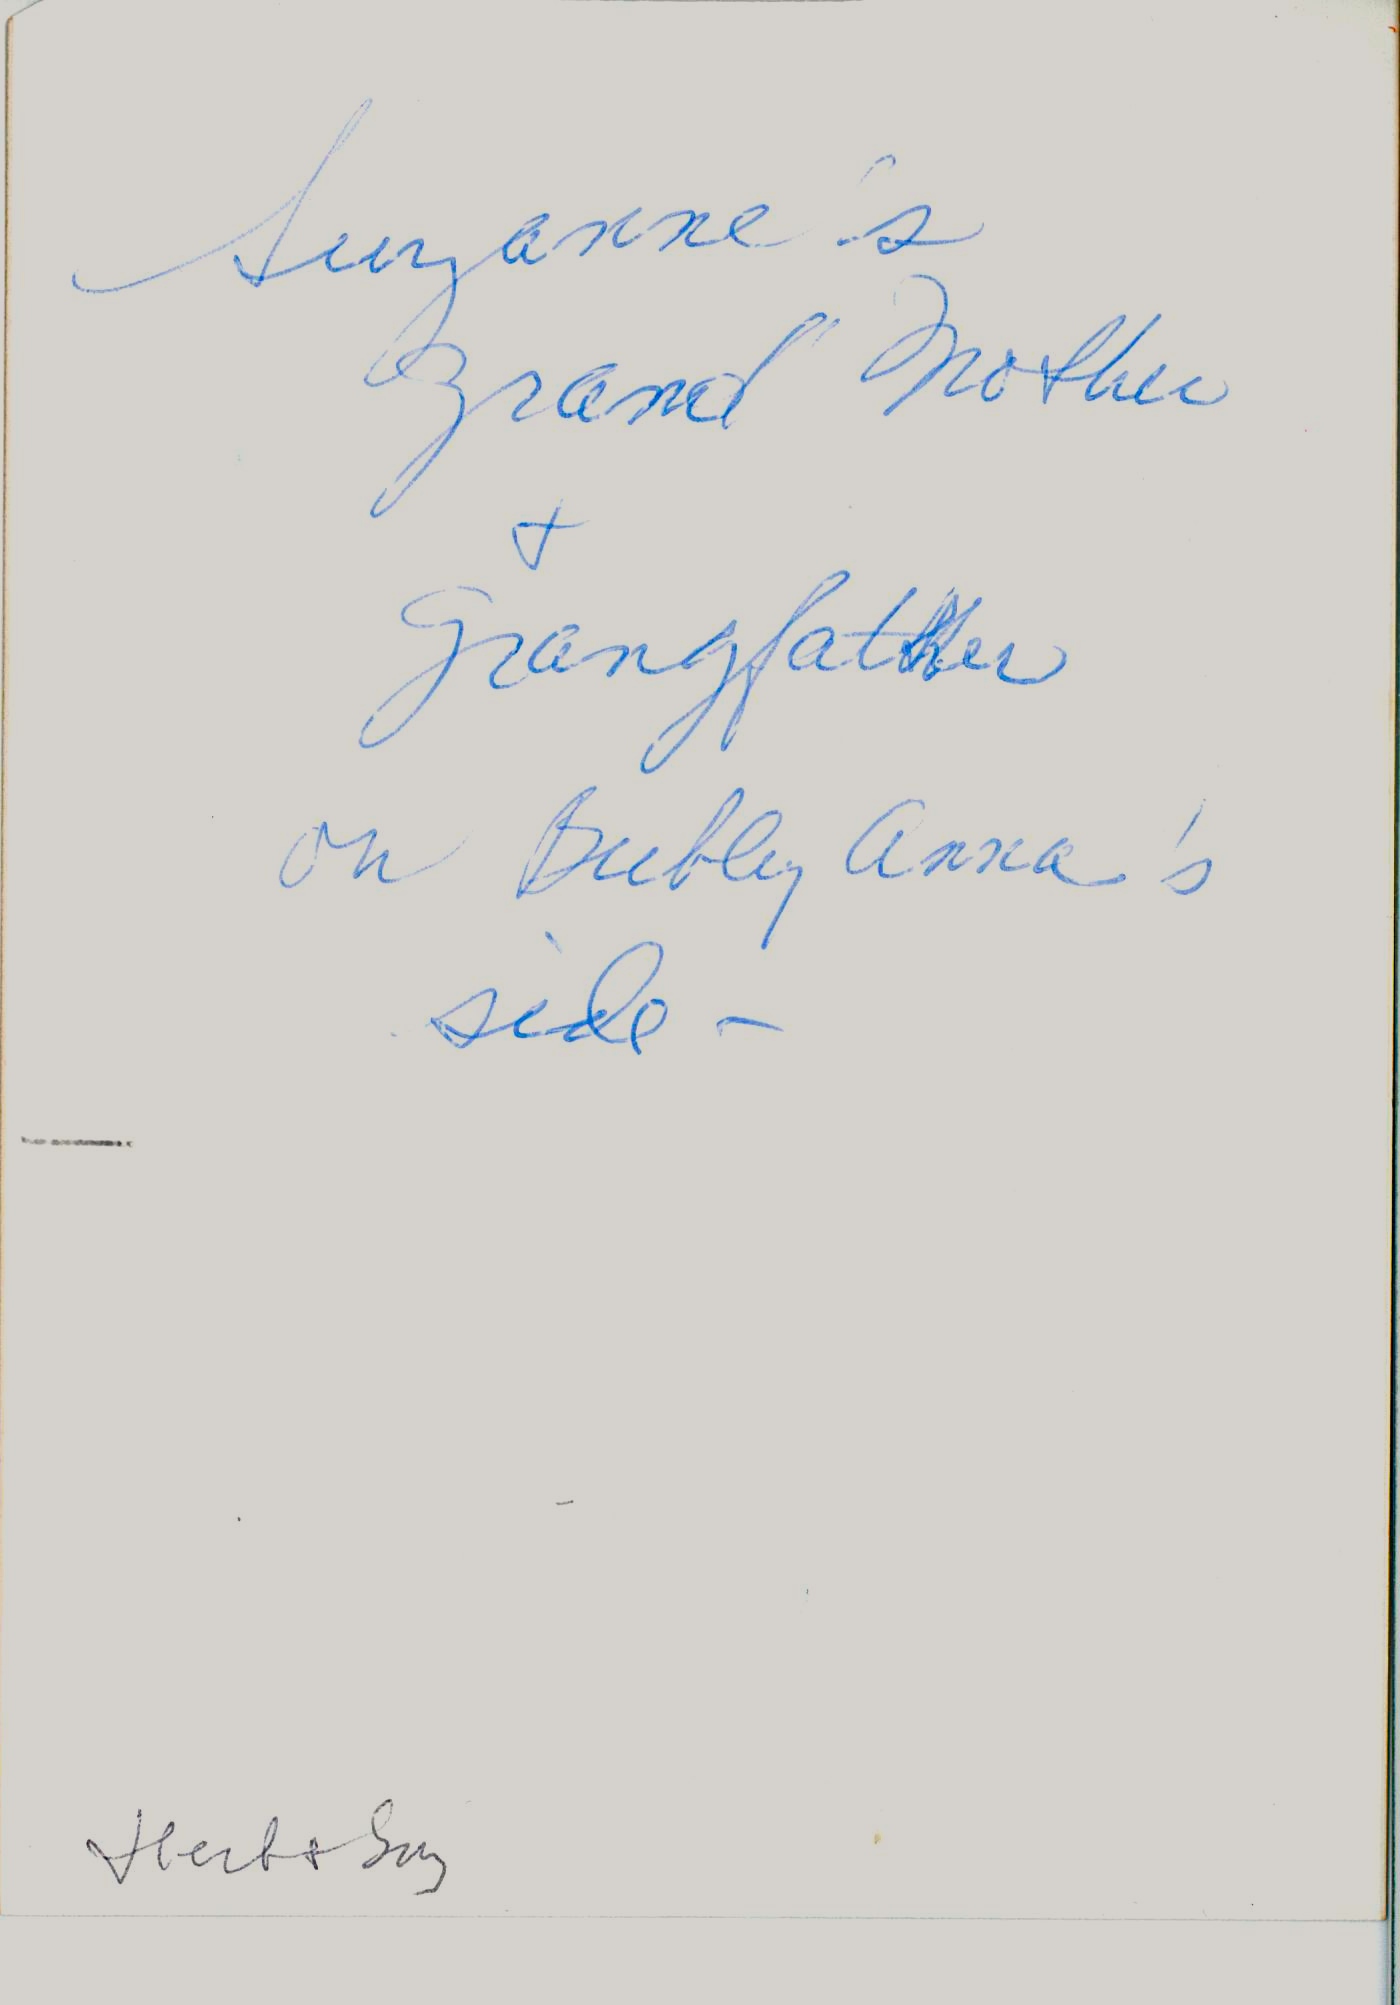 Suzanne's
Grand Mother
+
Grangfather
on Bubby Anna's
side -
Herb + Suz